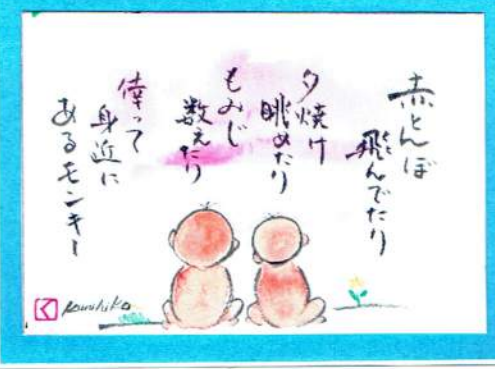 赤とんぼ
飛んでたり
夕焼け
眺めたり
もみじ
数えたり
倖って
身近に
あるモンキー
く
Kunihiko